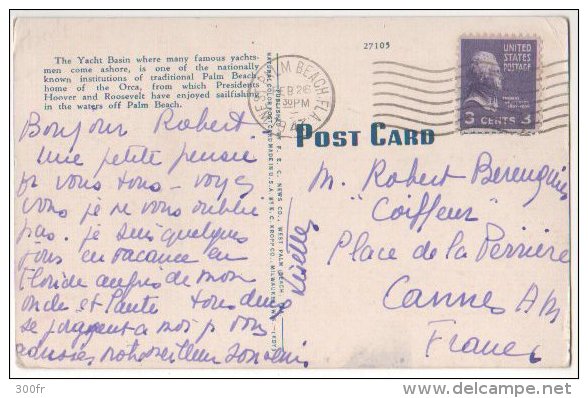 The Yacht Basin where many famous yachts-
men come ashore, is one of the nationally-
known institutions of traditional Palm Beach,
home of the Orca, from which Presidents
Hoover and Roosevelt have enjoyed sailfishing
in the waters off Palm Beach.
27105
PALM BEACH FLA.
FEB 26
PM
UNITED
STATES
POSTAGE
3 CENTS 3
POST CARD
Bonjour Robert
une petite pensée
pr vous tous – voyez
vous je ne vous oublie
pas. je suis quelques
jours en vacance en
Floride auprès de mon
oncle et tante tous deux
se joignent a moi p vous
notre meilleur souvenir
M. Robert
"Coiffeur"
Place de la
Cannes AM
France
300fr
www.delcampe.net